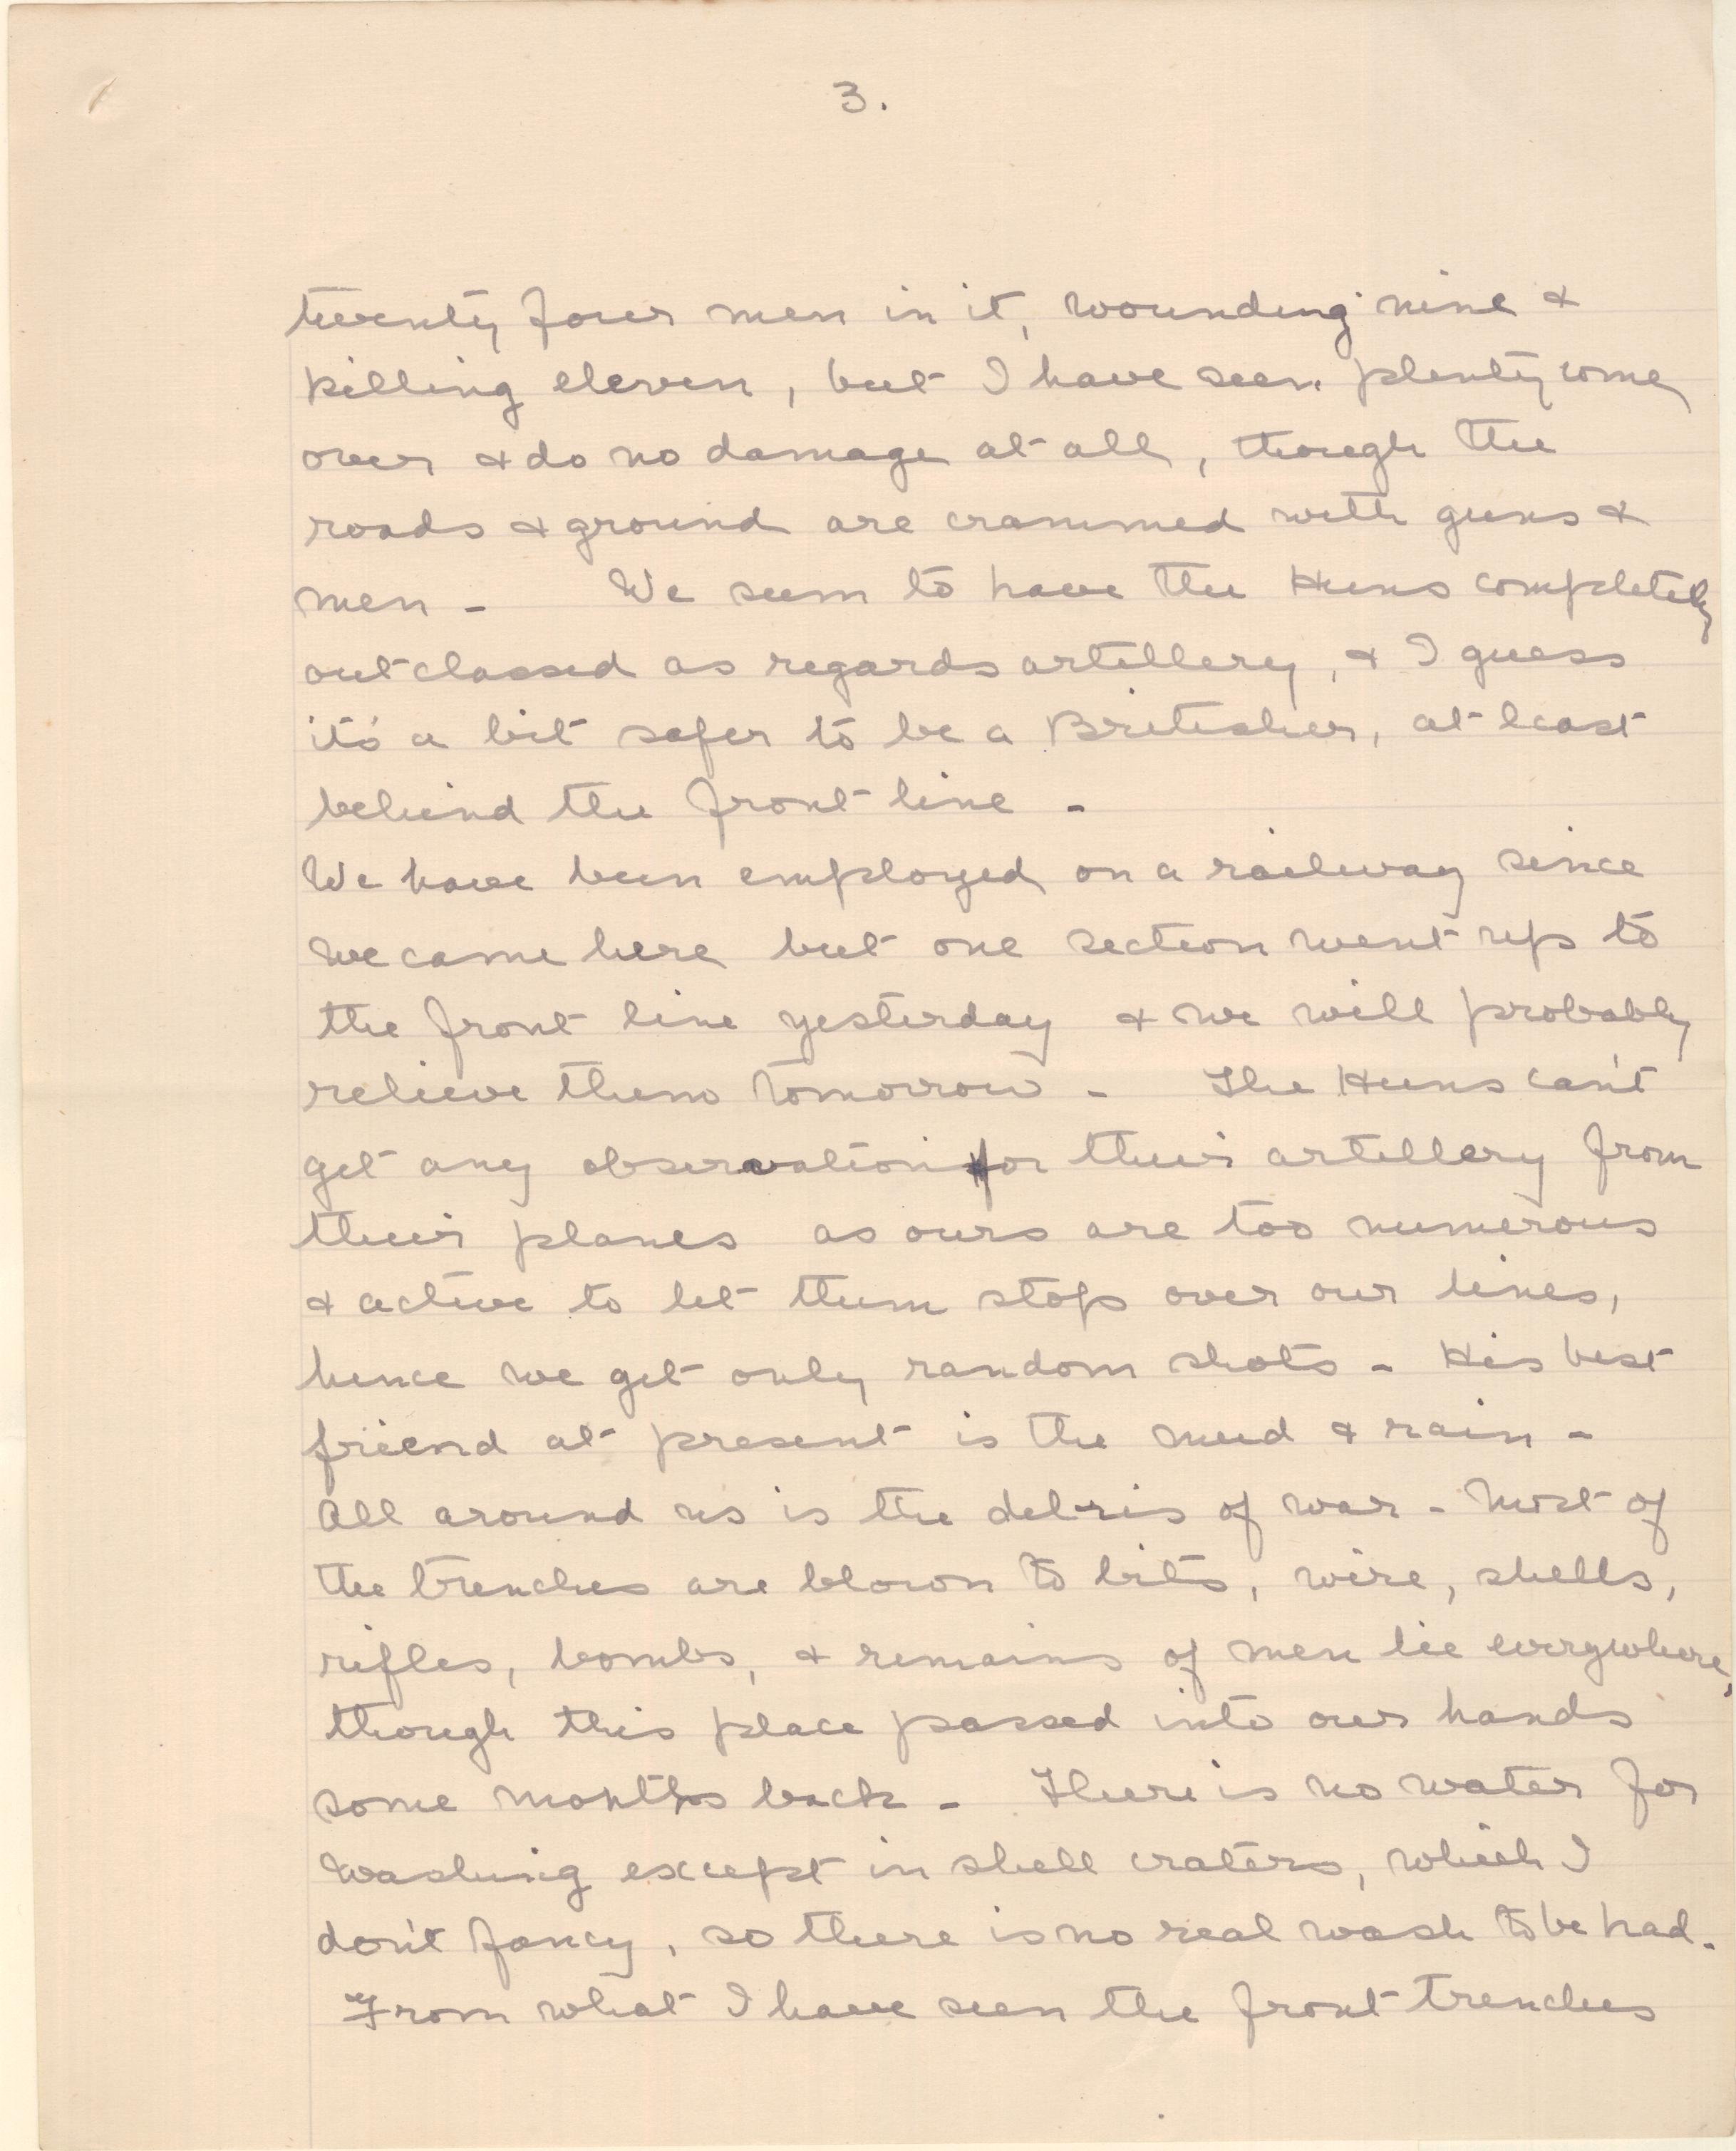 3.
twenty four men in it, wounding nine &
killing eleven, but I have seen plenty come
over & do no damage at all, though the
roads & ground are crammed with guns &
men - We seem to have the Huns completely
outclassed as regards artillery, & I guess
it's a bit safer to be a Britisher, at least
behind the front line -
We have been employed on a railway since
we came here but one section went up to
the front line yesterday & we will probably
relieve them tomorrow - The Huns can't
get any observation for their artillery from
their planes as ours are too numerous
& active to let them stop over our lines,
hence we get only random shots - His best
friend at present is the mud & rain -
All around us is the debris of war - Most of
the trenches are blown to bits, wire, shells,
rifles, bombs, & remains of men lie everywhere,
though this place passed into our hands
some months back - There is no water for
washing except in shell craters, which I
don't fancy, so there is no real wash to be had.
From what I have seen the front trenches